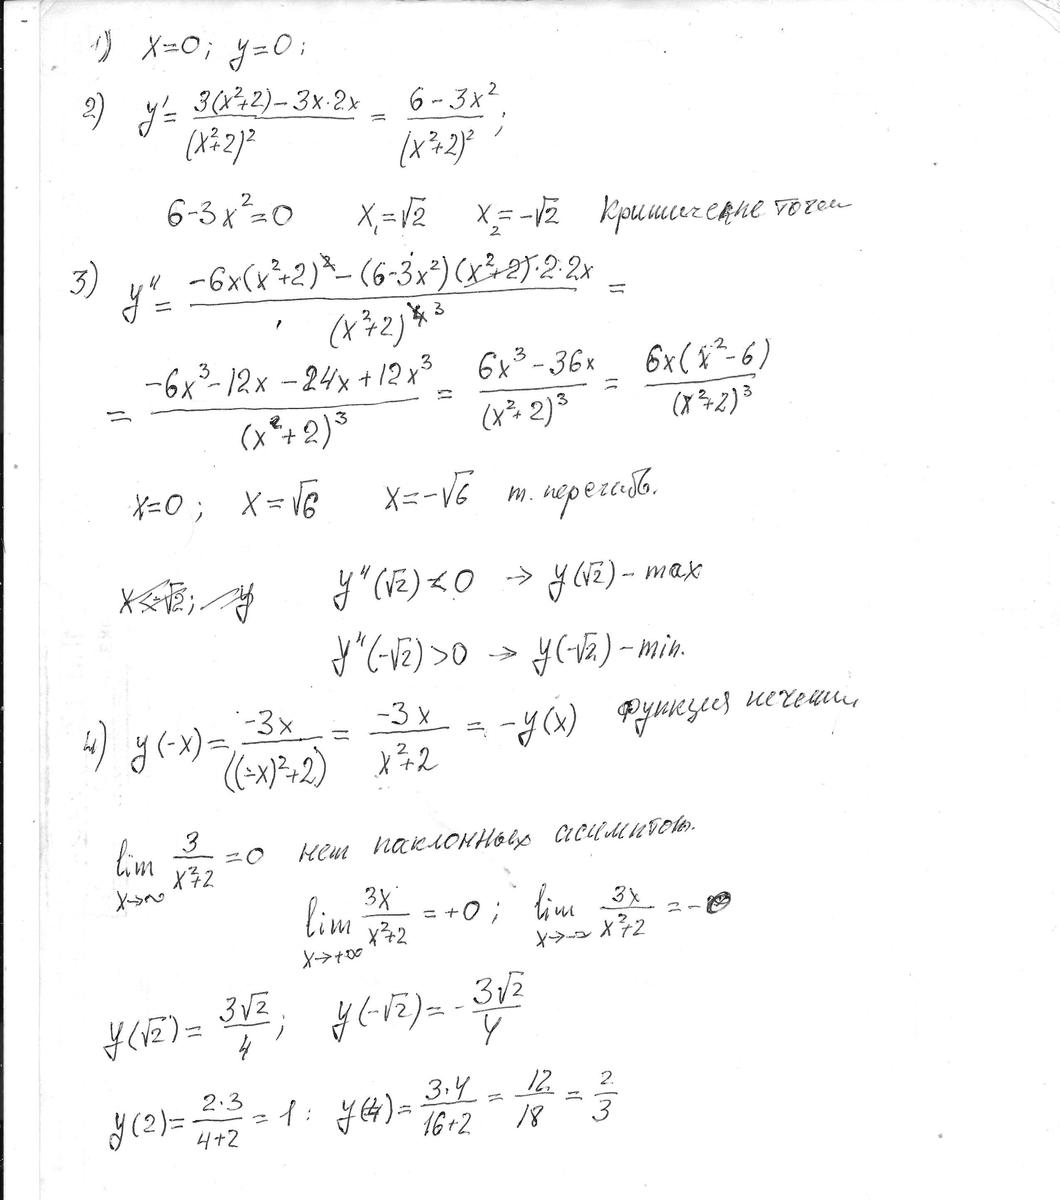 1) x=0; y=0;
2) y' = (3(x²+2) - 3x·2x)/(x²+2)² = (6-3x²)/(x²+2)²;
6-3x²=0 x₁=√2 x₂=-√2 критические точки
3) y'' = (-6x(x²+2)² - (6-3x²)(x²+2)·2·2x)/(x²+2)⁴ ³ =
= (-6x³-12x-24x+12x³)/(x²+2)³ = (6x³-36x)/(x²+2)³ = 6x(x²-6)/(x²+2)³
x=0; x=√6 x=-√6 т. перегиба.
y''(√2) < 0 → y(√2) - max
y''(-√2) > 0 → y(-√2) - min.
4) y(-x) = -3x/((-x)²+2) = -3x/(x²+2) = -y(x) Функция нечетная
lim x→∞ 3/(x²+2) = 0 нет наклонных асимптот.
lim x→+∞ 3x/(x²+2) = +0; lim x→-∞ 3x/(x²+2) = -0
y(√2) = 3√2/4; y(-√2) = -3√2/4
y(2) = 2·3/(4+2) = 1; y(4) = 3·4/(16+2) = 12/18 = 2/3